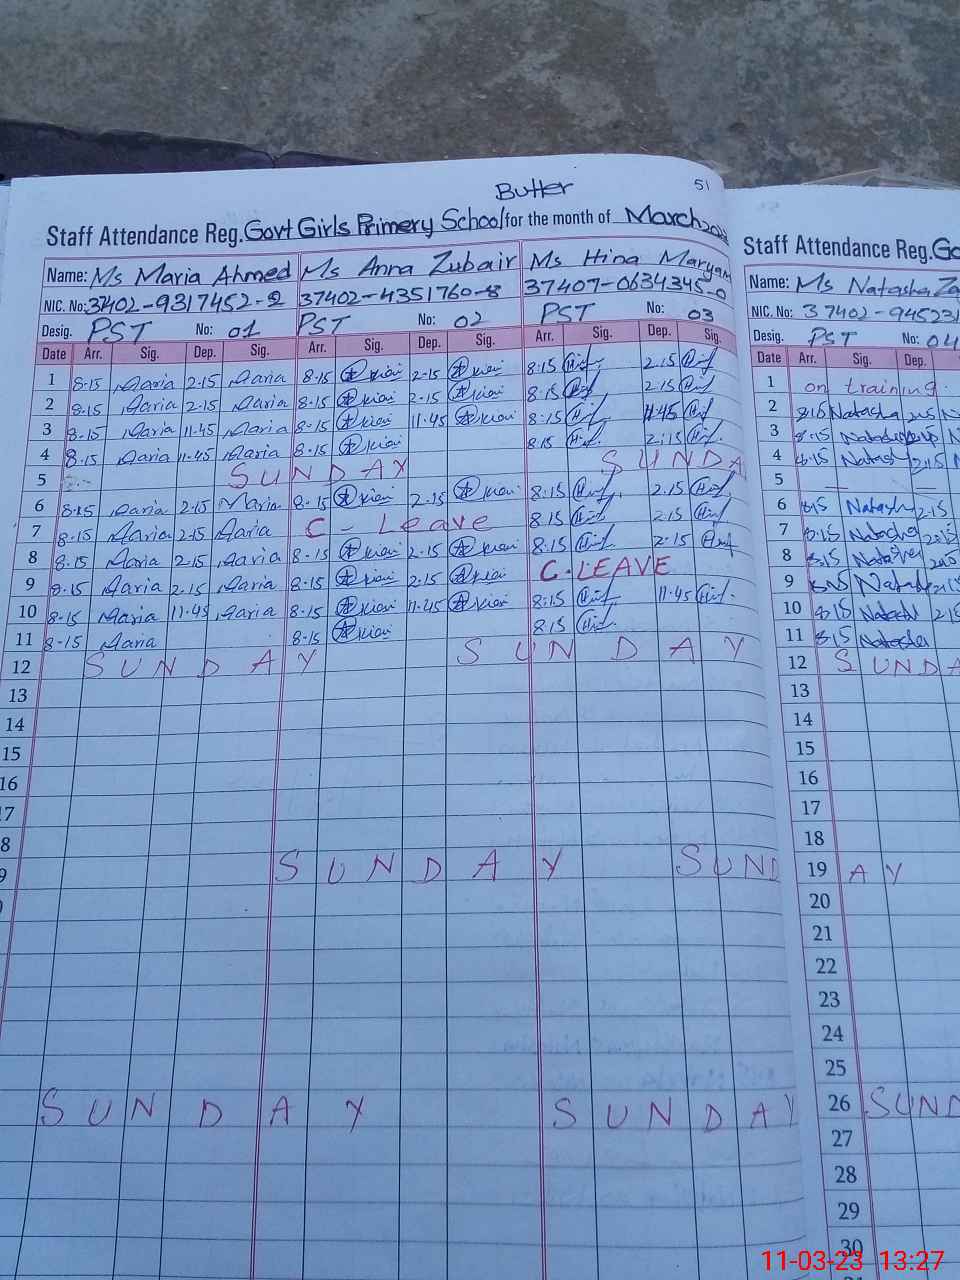 Butter
51
Staff Attendance Reg. Govt Girls Primery School for the month of March
Name: Ms Maria Ahmed Ms Anna Zubair Ms Hina Maryam
NIC. No: 37402-9317452-2 37402-4351760-8 37407-0634345-0
Desig. PST No: 01 PST No: 02 PST No: 03
Date Arr. Sig. Dep. Sig. Arr. Sig. Dep. Sig. Arr. Sig. Dep. Sig.
1 8-15 Maria 2-15 Maria 8-15 2-15 8-15 2.15
2 8-15 Maria 2-15 Maria 8-15 2-15 8-15 2.15
3 8-15 Maria 11-45 Maria 8-15 11-45 8-15 11-45
4 8-15 Maria 11-45 Maria 8-15 8.15 2:15
5 SUNDAY SUNDA
6 8.15 Maria 2-15 Maria 8-15 2-15 8.15 2.15
7 8-15 Maria 2-15 Maria C - Leave 8.15 2.15
8 8-15 Maria 2.15 Maria 8-15 2-15 8:15 2-15
9 8-15 Maria 2-15 Maria 8-15 2-15 C-LEAVE
10 8-15 Maria 11-45 Maria 8-15 11-45 8:15 11-45
11 8-15 Maria 8-15 8.15
12 SUNDAY SUNDAY
13
14
15
16
17
8
9 SUNDAY SUND
SUNDAY SUNDAY
Staff Attendance Reg. Go
Name: Ms Natasha Za
NIC. No: 37402-945231
Desig. PST No: 04
Date Arr. Sig. Dep.
1 on training
2 8.15 Natasha 2.15 N
3 8.15 Natasha N
4 8.15 Natasha 2:15 N
5
6 8.15 Natasha 2.15
7 8.15 Natasha 2.15
8 8.15 Natasha
9 Natasha 2.15
10 8.15 Natasha 2.15
11 8.15 Natasha
12 SUNDA
13
14
15
16
17
18
19 AY
20
21
22
23
24
25
26 SUND
27
28
29
30
11-03-23 13:27